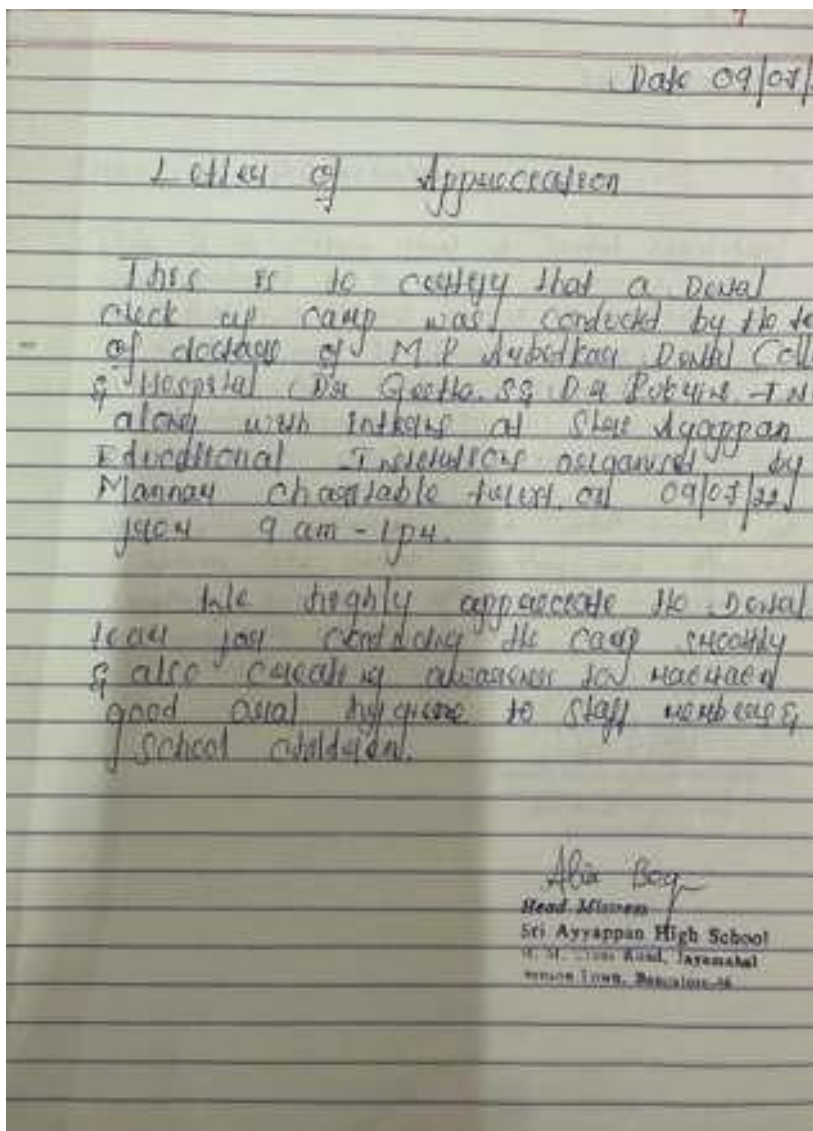 Date 09/07/
Letter of Appreciation
This is to certify that a Dental
check up camp was conducted by the te
of doctors of M R Ambedkar Dental Coll
& Hospital (Dr Geetha. S &
along with interns at Shree Ayyappan
Educational Institutions organised by
Mannar Charitable trust. on 09/07/22.
from 9 am - 1 pm.
We highly appreciate the Dental
team for conducting the camp smoothly
& also creating awareness for
good oral hygiene to staff members &
school children.
Head Mistress
Sri Ayyappan High School
Road, Jayamahal
Town, Bangalore-46